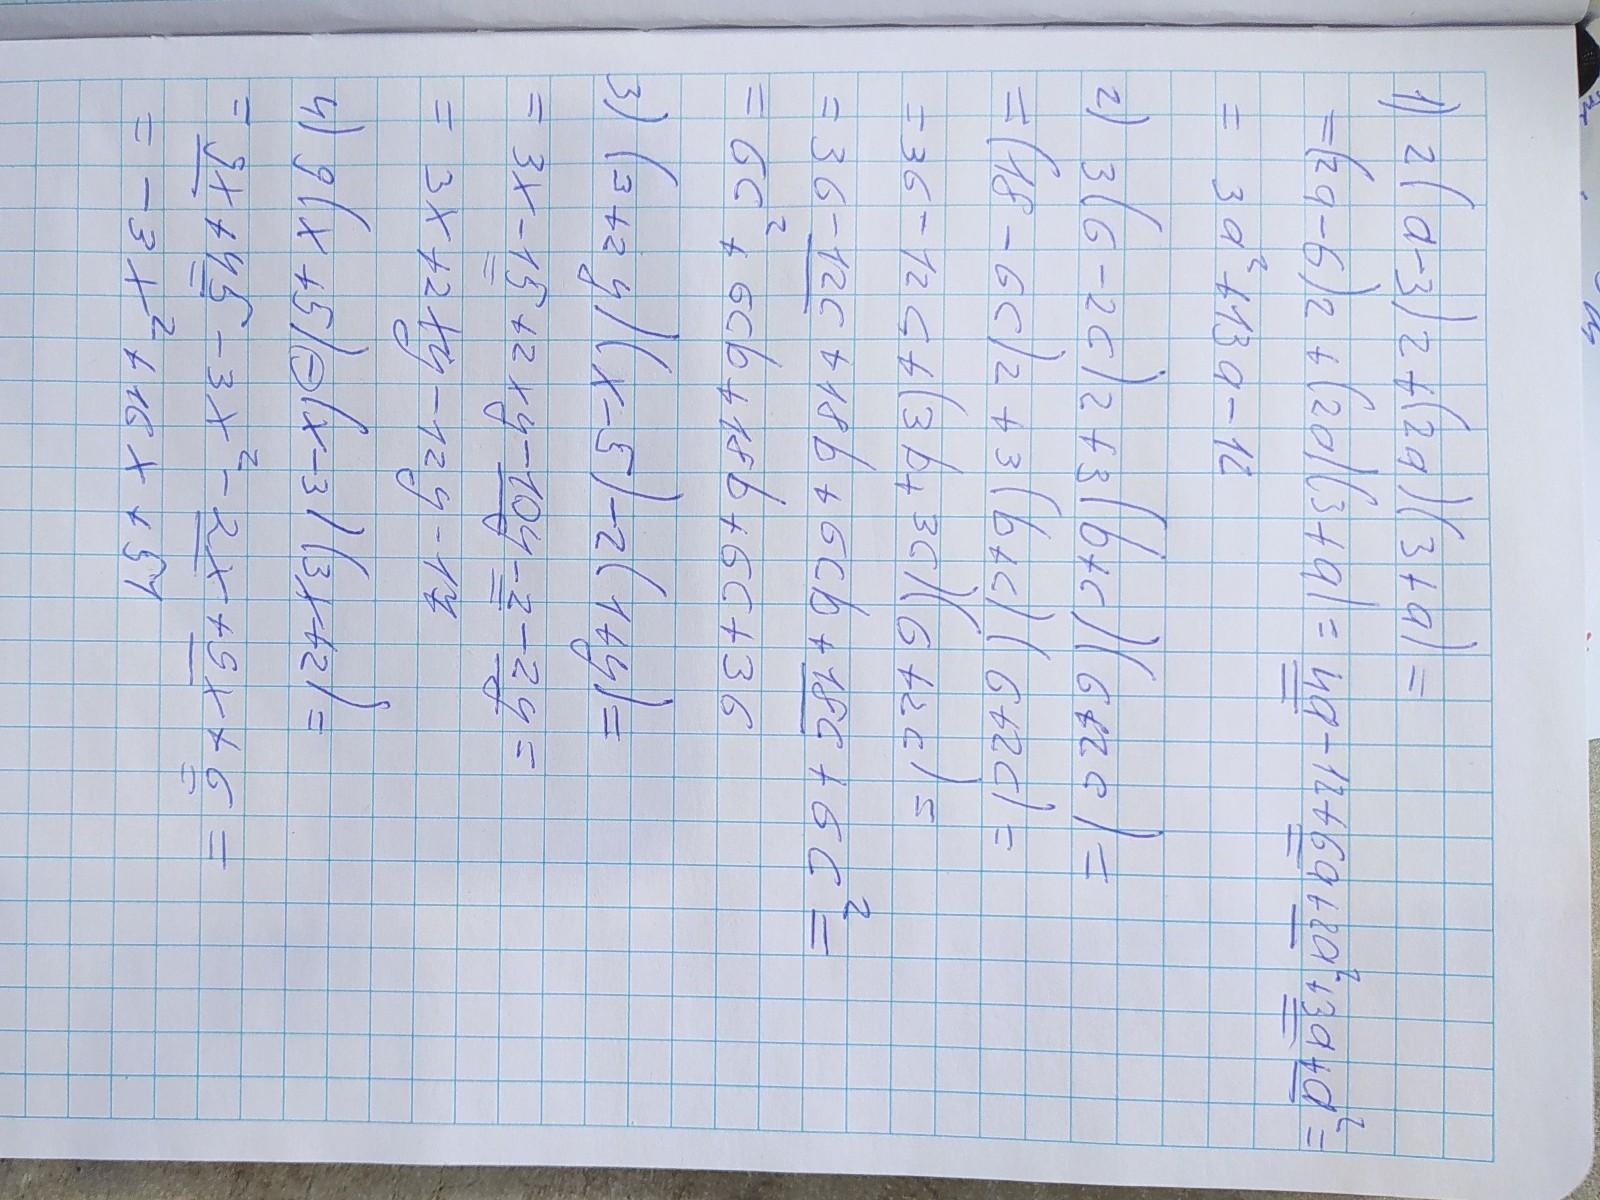 1) 2(a-3)2+(2a)(3+a)=
=(2a-6)2+(2a)(3+a)=4a-12+6a+2a²+3a+a²=
= 3a²+13a-12
2) 3(6-2c)2+3(b+c)(6+2c)=
=(18-6c)2+3(b+c)(6+2c)=
=36-12c+(3b+3c)(6+2c)=
=36-12c+18b+6cb+18c+6c²=
=6c²+6cb+18b+6c+36
3) (3+2y)(x-5)-2(1+y)=
=3x-15+2xy-10y-2-2y=
= 3x+2xy-12y-17
4) 9(x+5)-(x-3)(3x+2)=
=9x+45-3x²-2x+9x+6=
= -3x²+16x+51